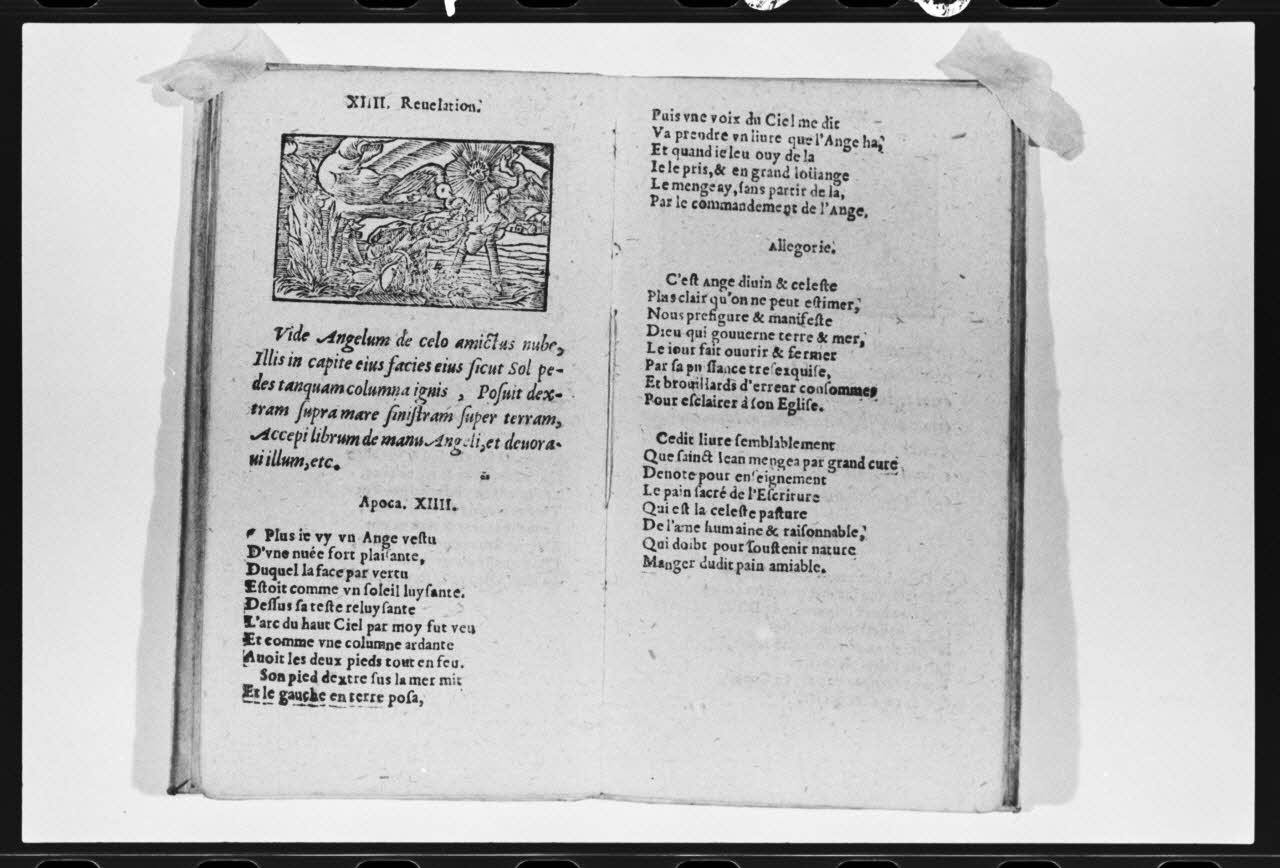 XIIII. Reuelation.
Vide Angelum de celo amictus nube,
Illis in capite eius facies eius ſicut Sol pe-
des tanquam columna ignis , Poſuit dex-
tram ſupra mare ſiniſtram ſuper terram,
Accepi librum de manu Angeli, et deuora-
ui illum, etc.
Apoca. XIIII.
Plus ie vy vn Ange veſtu
D'vne nuée fort plaiſante,
Duquel la face par vertu
Eſtoit comme vn ſoleil luyſante.
Deſſus ſa teſte reluyſante
L'arc du haut Ciel par moy fut veu
Et comme vne columne ardante
Auoit les deux pieds tout en feu.
Son pied dextre ſus la mer mit
Et le gauche en terre poſa,
Puis vne voix du Ciel me dit
Va prendre vn liure que l'Ange ha,
Et quand ie leu ouy de la
Ie le pris, & en grand loüange
Le mengeay, ſans partir de la,
Par le commandement de l'Ange.
Allegorie.
C'eſt Ange diuin & celeſte
Plus clair qu'on ne peut eſtimer,
Nous prefigure & manifeſte
Dieu qui gouuerne terre & mer,
Le iour fait ouurir & fermer
Par ſa puiſſance treſexquiſe,
Et brouillards d'erreur conſommer
Pour eſclairer à ſon Egliſe.
Cedit liure ſemblablement
Que ſainct Iean mengea par grand cure
Denote pour enſeignement
Le pain ſacré de l'Eſcriture
Qui eſt la celeſte paſture
De l'ame humaine & raiſonnable,
Qui doibt pour ſouſtenir nature
Manger dudit pain amiable.